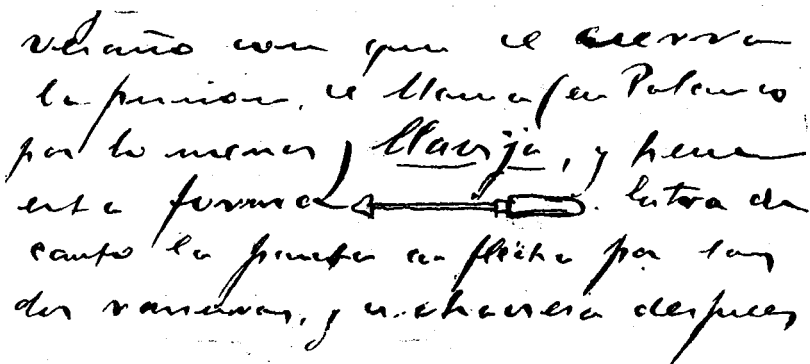 verano con que se cierra
la prision, se llama (en Polanco
por lo menos) llavija, y tiene
esta forma . Entra de
canto la punta en flecha por las
dos ranuras, y se chavea despues